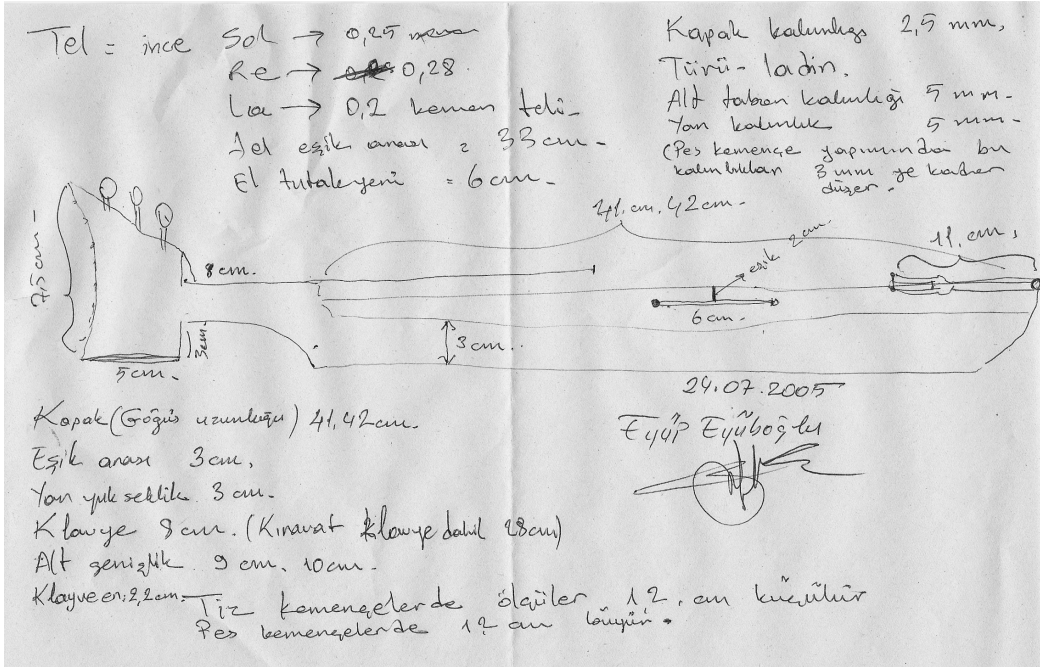 Tel = ince Sol → 0,25 mm
Re → 0,28
La → 0,2 keman teli
Tel eşik arası = 33 cm.
El tutak yeri = 6 cm.
Kapak kalınlığı 2,5 mm.
Türü - ladin.
Alt taban kalınlığı 5 mm.
Yan kalınlık 5 mm.
(Pes kemençe yapımında bu
kalınlıklar 3 mm ye kadar
düşer.
41. cm. 42 cm.
11. cm.
7,5 cm.
8 cm.
eşik 2 cm.
6 cm.
3 cm.
3 cm.
5 cm.
24.07.2005
Eyüp Eyüboğlu
Kapak (Göğüs uzunluğu) 41,42 cm.
Eşik arası 3 cm.
Yan yükseklik 3 cm.
Klavye 8 cm. (Kıravat Klavye dahil 28 cm)
Alt genişlik 9 cm. 10 cm.
Klayve en: 2,2 cm.
Tiz kemençelerde ölçüler 1 2. cm küçülür
Pes kemençelerde 1 2 cm büyür.